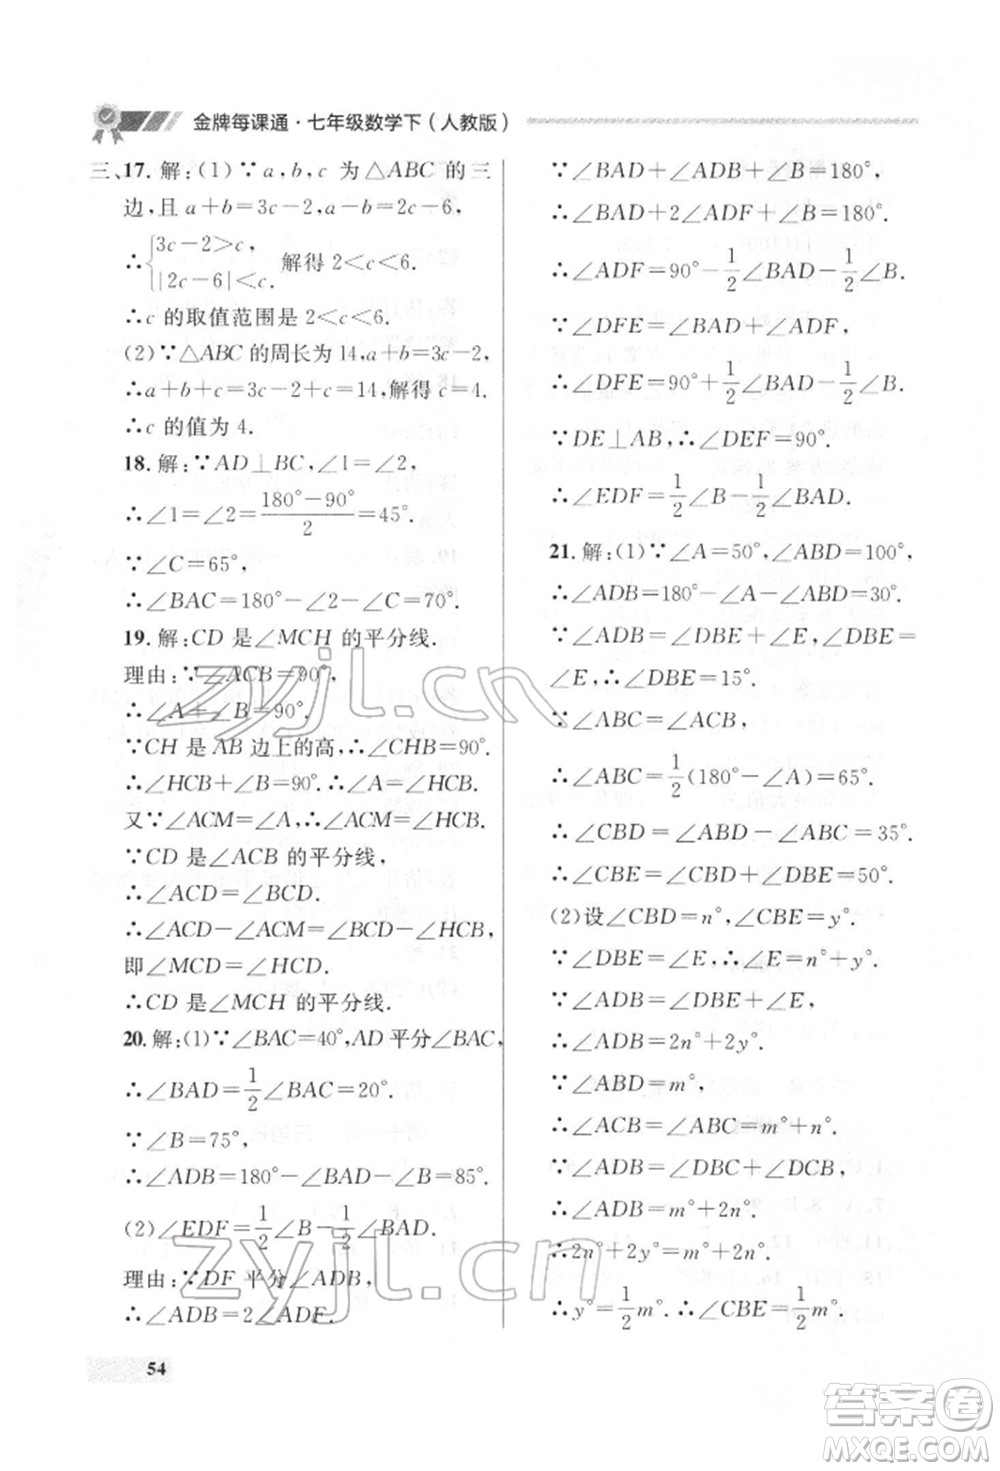 金牌每课通·七年级数学下（人教版）
三、17. 解：(1)∵a,b,c 为△ABC 的三
边，且 a+b=3c-2,a-b=2c-6,
∴{3c-2>c, |2c-6|<c. 解得 2<c<6.
∴c 的取值范围是 2<c<6.
(2)∵△ABC 的周长为 14,a+b=3c-2,
∴a+b+c=3c-2+c=14,解得 c=4.
∴c 的值为 4.
18. 解：∵AD⊥BC,∠1=∠2,
∴∠1=∠2=(180°-90°)/2=45°.
∵∠C=65°,
∴∠BAC=180°-∠1-∠C=70°.
19. 解：CD 是∠MCH 的平分线.
理由：∵∠ACB=90°,
∴∠A+∠B=90°.
∵CH 是 AB 边上的高,∴∠CHB=90°.
∴∠HCB+∠B=90°.∴∠A=∠HCB.
又∵∠ACM=∠A,∴∠ACM=∠HCB.
∵CD 是∠ACB 的平分线,
∴∠ACD=∠BCD.
∴∠ACD-∠ACM=∠BCD-∠HCB,
即∠MCD=∠HCD.
∴CD 是∠MCH 的平分线.
20. 解：(1)∵∠BAC=40°,AD 平分∠BAC,
∴∠BAD=1/2∠BAC=20°.
∵∠B=75°,
∴∠ADB=180°-∠BAD-∠B=85°.
(2)∠EDF=1/2∠B+1/2∠BAD.
理由：∵DF 平分∠ADB,
∴∠ADB=2∠ADF.
∵∠BAD+∠ADB+∠B=180°,
∴∠BAD+2∠ADF+∠B=180°.
∴∠ADF=90°-1/2∠BAD-1/2∠B.
∵∠DFE=∠BAD+∠ADF,
∴∠DFE=90°+1/2∠BAD-1/2∠B.
∵DE⊥AB,∴∠DEF=90°.
∴∠EDF=1/2∠B-1/2∠BAD.
21. 解：(1)∵∠A=50°,∠ABD=100°,
∴∠ADB=180°-∠A-∠ABD=30°.
∵∠ADB=∠DBE+∠E,∠DBE=
∠E,∴∠DBE=15°.
∵∠ABC=∠ACB,
∴∠ABC=1/2(180°-∠A)=65°.
∴∠CBD=∠ABD-∠ABC=35°.
∴∠CBE=∠CBD+∠DBE=50°.
(2)设∠CBD=n°,∠CBE=y°.
∵∠DBE=∠E,∴∠E=n°+y°.
∵∠ADB=∠DBE+∠E,
∴∠ADB=2n°+2y°.
∵∠ABD=m°,
∴∠ACB=∠ABC=m°+n°.
∵∠ADB=∠DBC+∠DCB,
∴∠ADB=m°+2n°.
∴2n°+2y°=m°+2n°.
∴y°=1/2m°.∴∠CBE=1/2m°.
54
zyjl.cn
zyjl.cn
答案圈
MXQE.COM